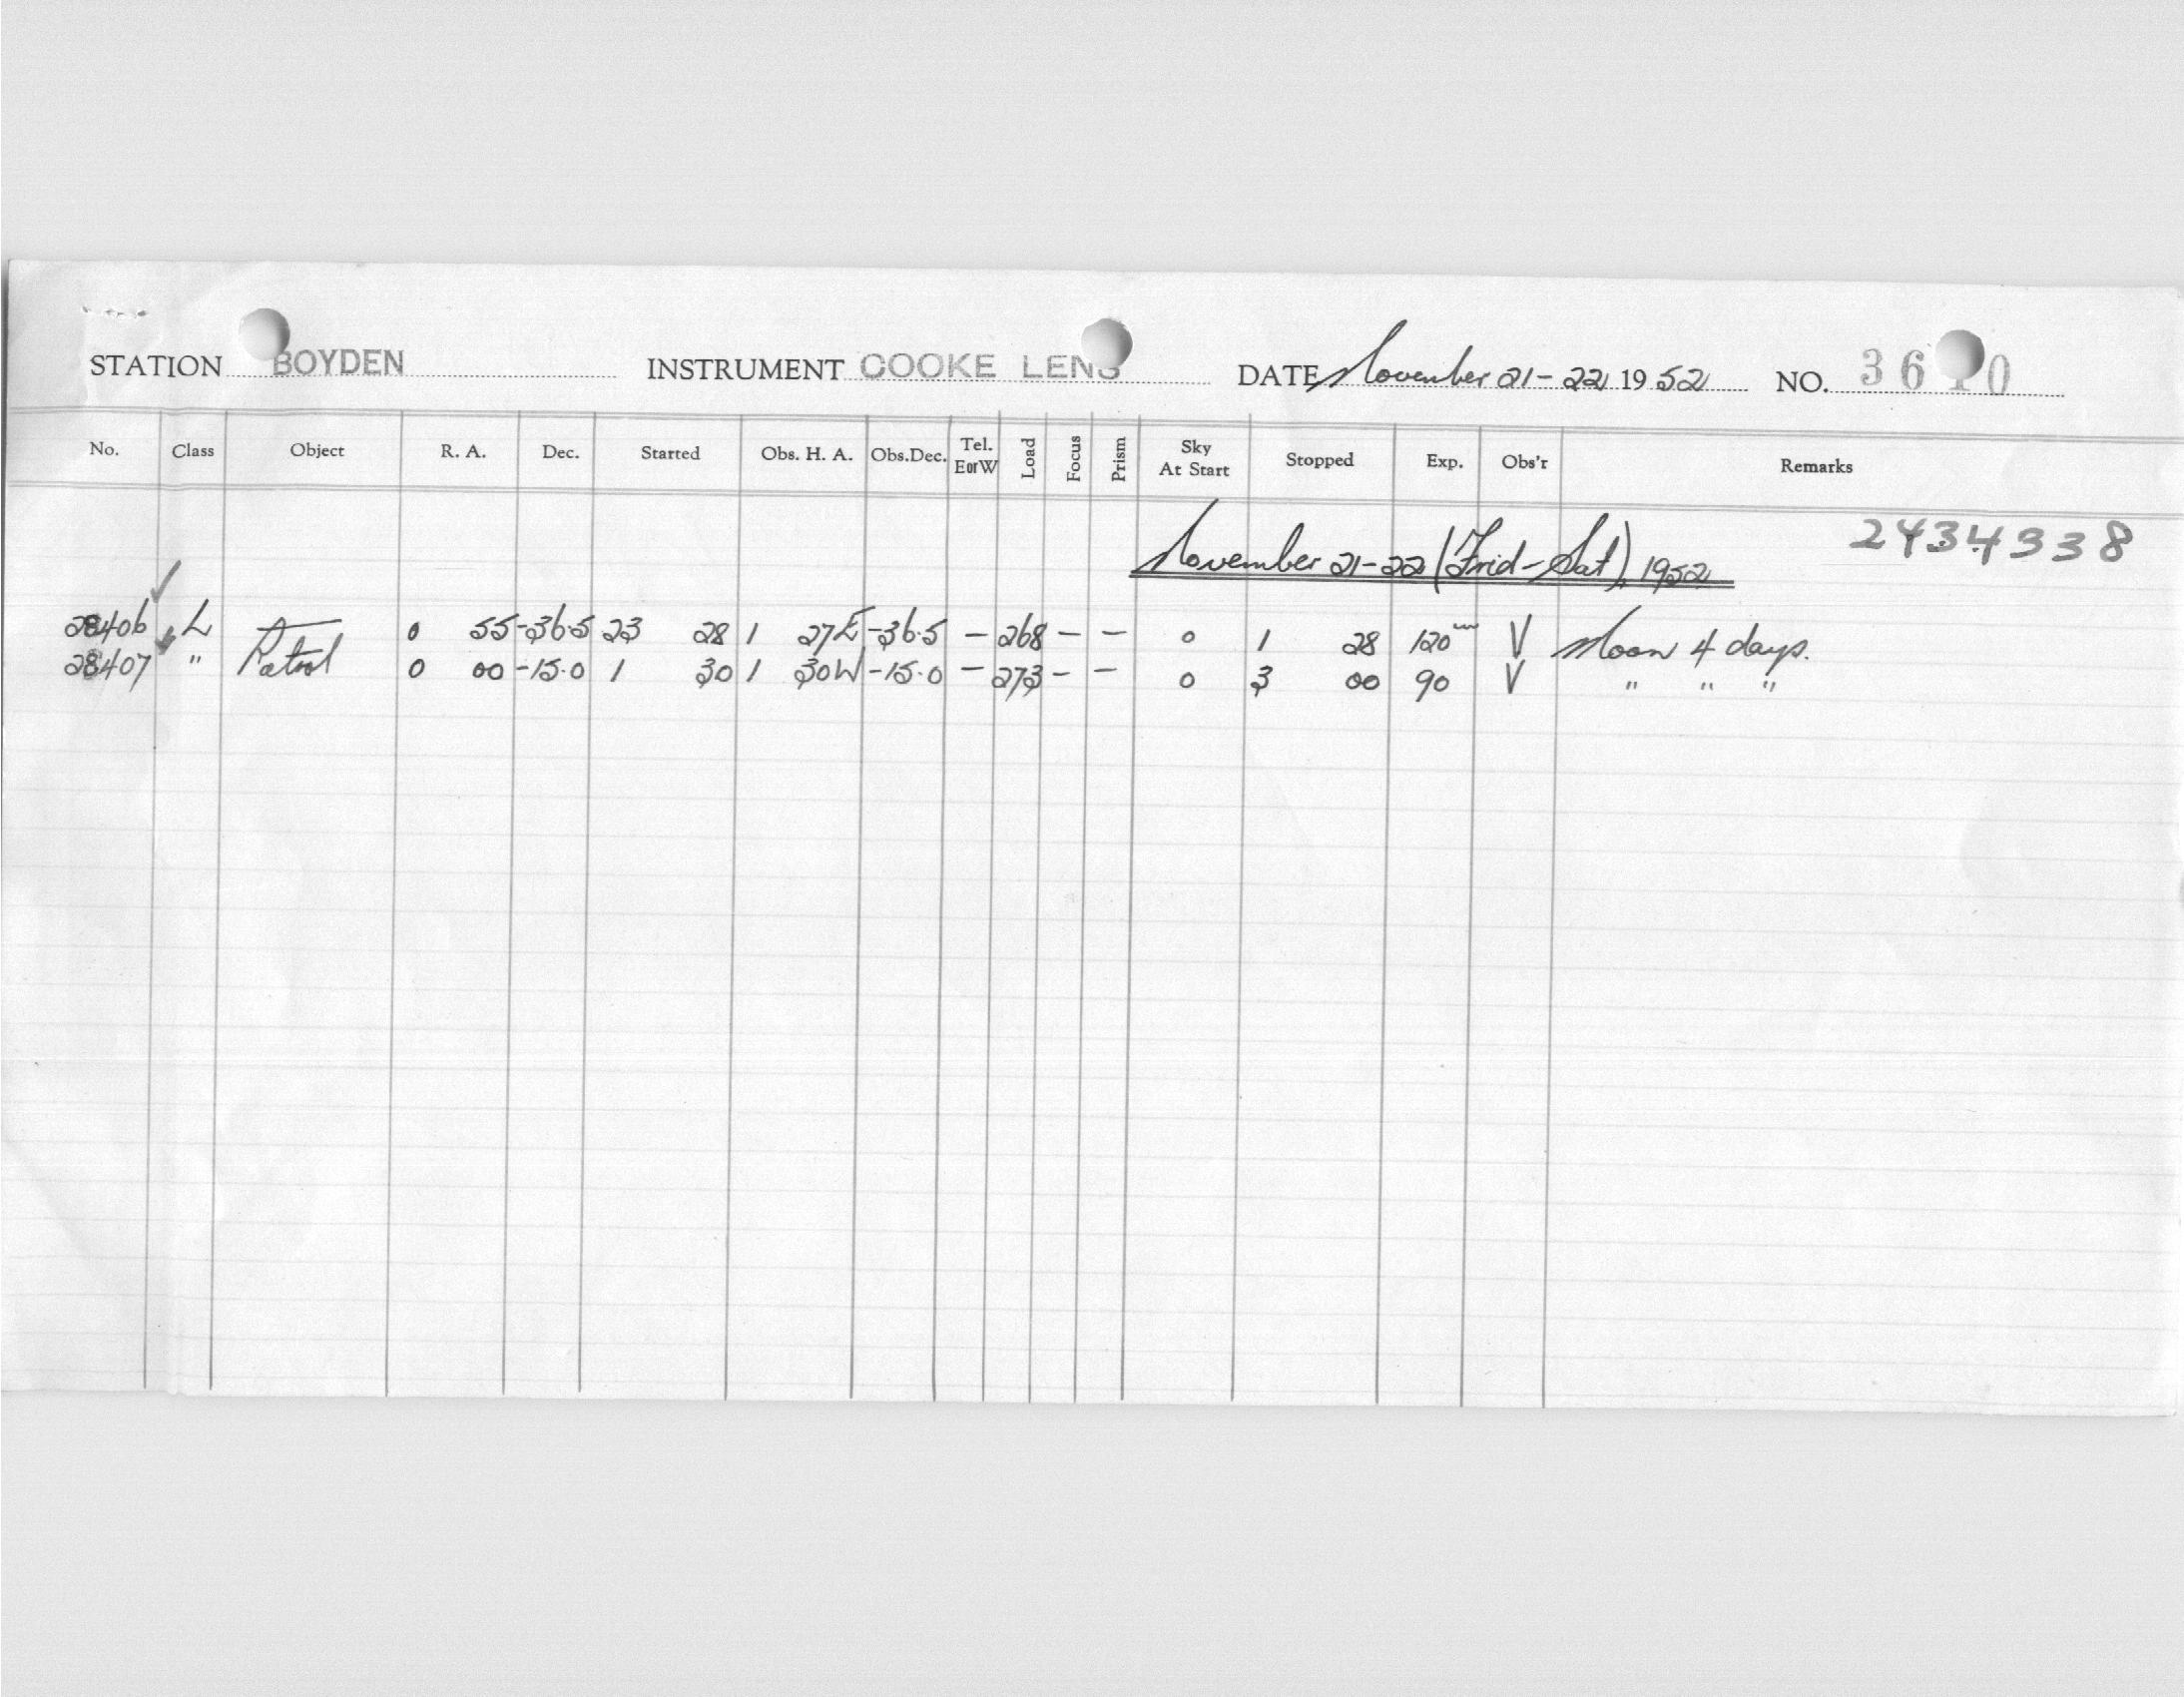 STATION BOYDEN INSTRUMENT COOKE LENS DATE November 21-22 1952 NO. 3610
No. Class Object R. A. Dec. Started Obs. H. A. Obs.Dec. Tel. EorW Load Focus Prism Sky At Start Stopped Exp. Obs'r Remarks
2434338
November 21-22 (Frid-Sat), 1952
28406 L — 0 55 -36.5 23 28 1 27E -36.5 — 268 — — 0 1 28 120m V Moon 4 days.
28407 " Patrol 0 00 -15.0 1 30 1 30W -15.0 — 273 — — 0 3 00 90 V " " "